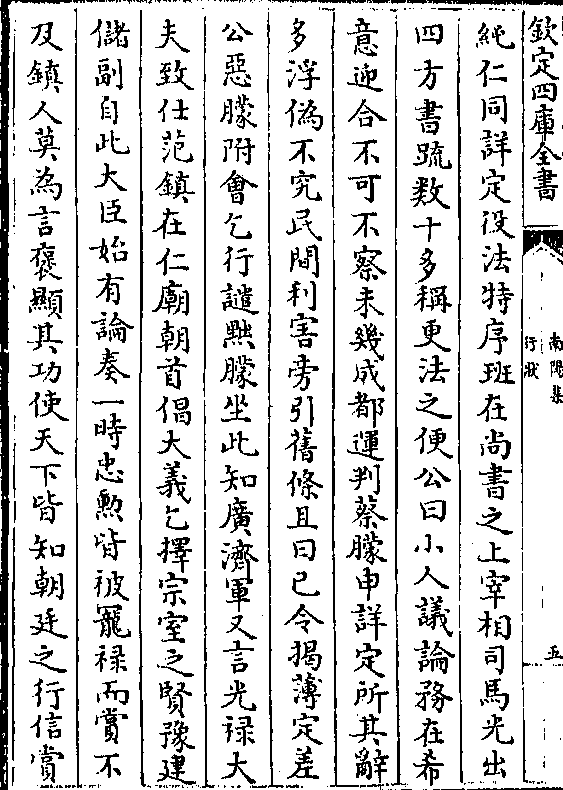 欽定四庫全書
南陽集
行狀
五
純仁同詳定役法特序班在尚書之上宰相司馬光出
四方書䟽数十多稱更法之便公曰小人議論務在希
意迎合不可不察未幾成都運判蔡朦申詳定所其辭
多浮偽不究民間利害旁引舊條且曰已令揭薄定差
公惡朦附㑹乞行譴㸃朦坐此知廣濟軍又言光禄大
夫致仕范鎮在仁廟朝首倡大義乞擇宗室之賢豫建
儲副自此大臣始有論奏一時忠勲皆被寵禄而賞不
及鎮人莫為言襃顯其功使天下皆知朝廷之行信賞